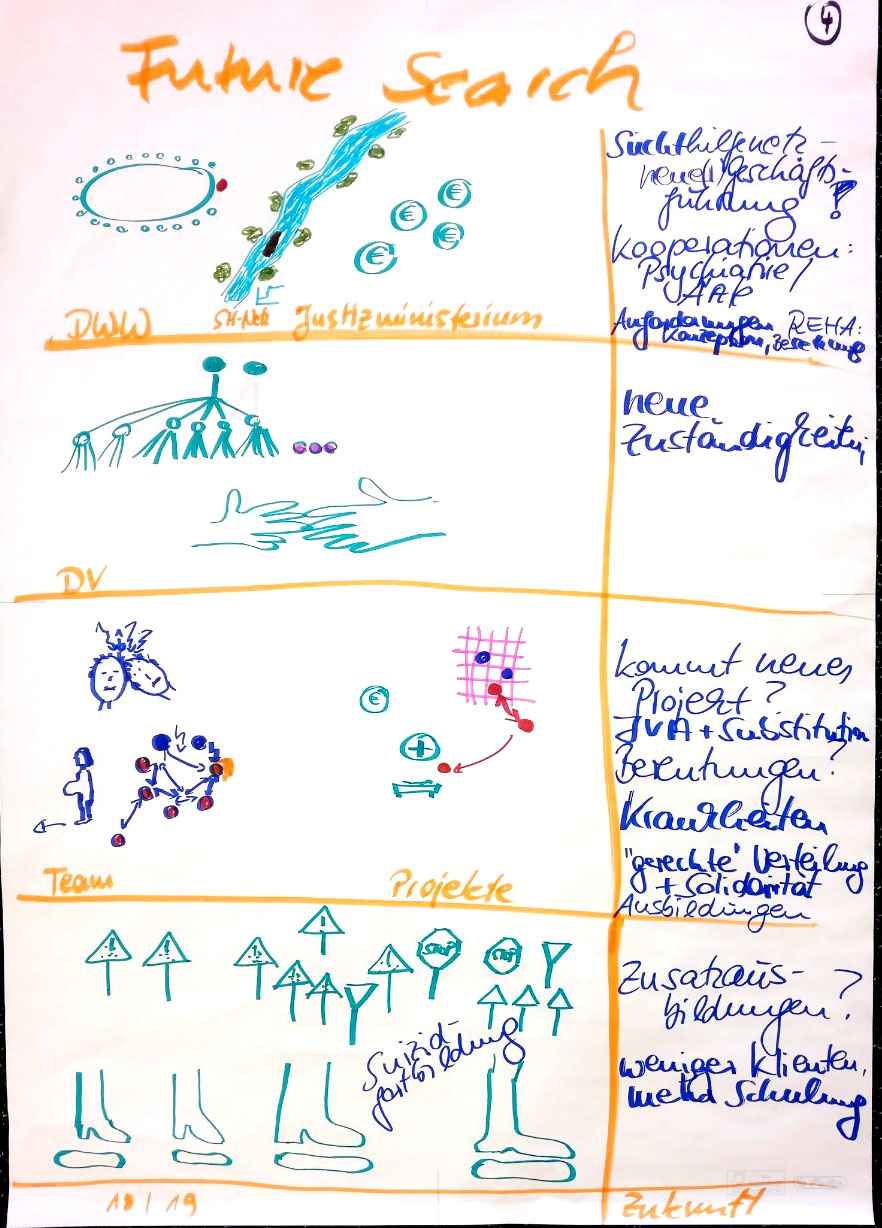 4
Future Search
Suchthilfenetz -
neue Geschäfts-
führung ?
Kooperationen:
Psychiatrie /
Anforderungen REHA:
DWW
Justizministerium
€
€
€
€
neue
Zuständigkeiten
DV
kommt neues
Projekt?
JVA + Substitution
Berentungen?
Krankheiten
"gerechte" Verteilung
+ Solidarität
Ausbildungen
€
+
Team
Projekte
!
!
!
STOP
STOP
Suizid-
fortbildung
Zusatzaus-
bildungen?
weniger Klienten,
mehr Schulung
18 / 19
Zukunft